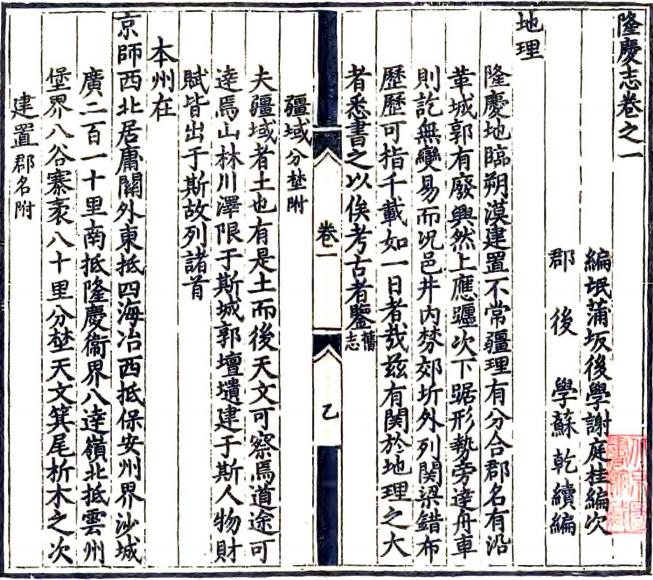 隆慶志卷之一
編垊蒲坂後學謝庭桂編次
郡後學蘇乾續編
地理
隆慶地臨朔漠建置不常疆理有分合郡名有沿
革城郭有廢興然上應躔次下踞形勢旁達舟車
則訖無變易而况邑井內棼郊圻外列関梁錯布
歷歷可指千載如一日者哉兹有関於地理之大
者悉書之以俟考古者鑒舊志
卷一
乙
疆域分埜附
夫疆域者土也有是土而後天文可察焉道途可
達焉山林川澤限于斯城郭壇壝建于斯人物財
賦皆出于斯故列諸首
本州在
京師西北居庸關外東抵四海冶西抵保安州界沙城
廣二百一十里南抵隆慶衞界八達嶺北抵雲州
堡界八谷寨袤八十里分埜天文箕尾析木之次
建置郡名附